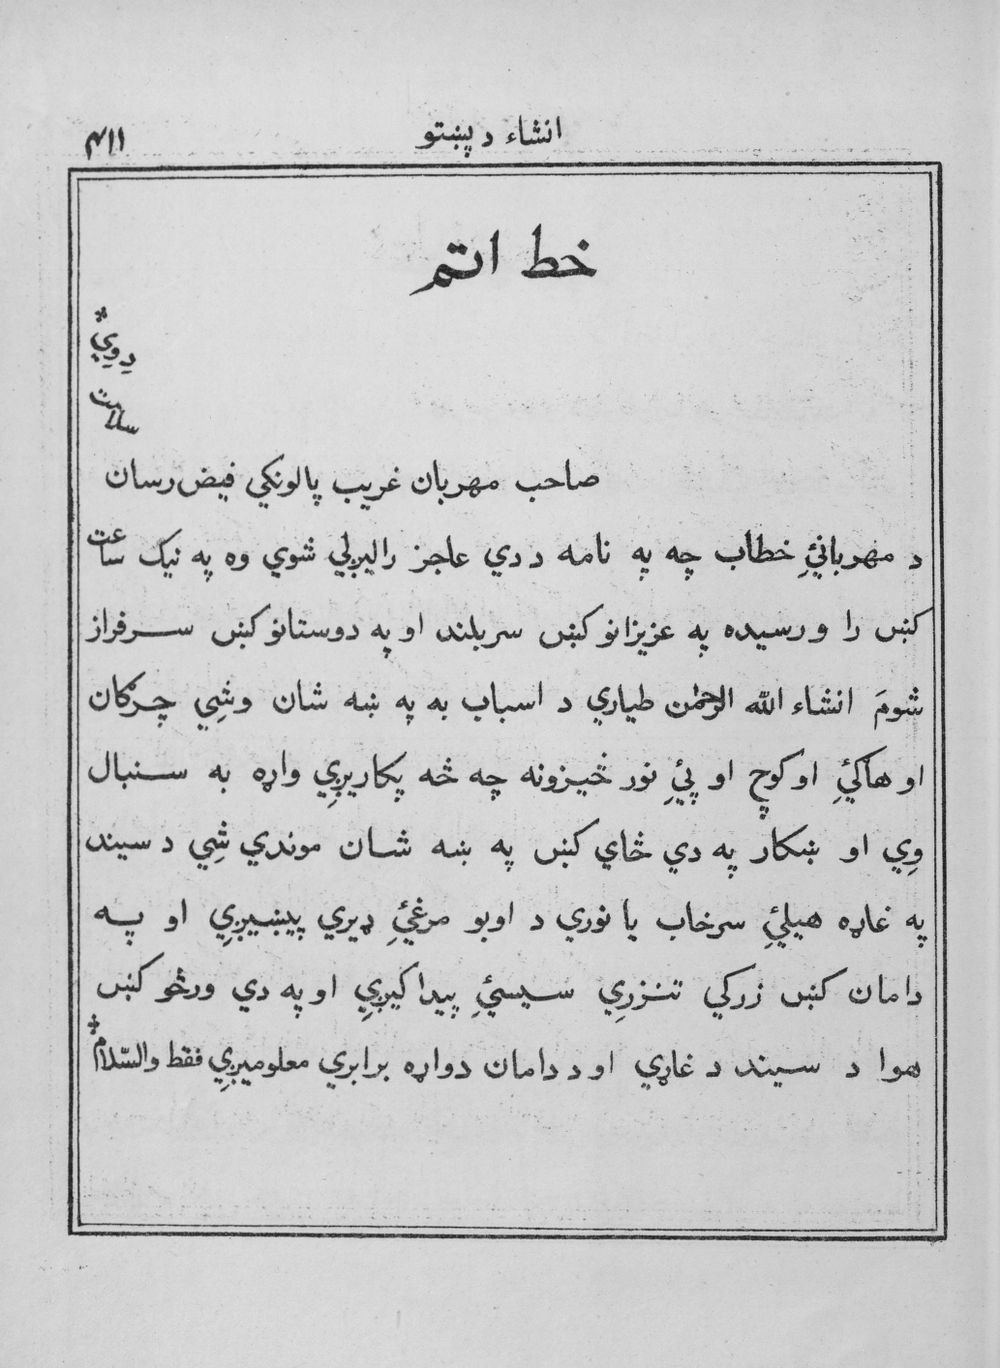 انشاء د پښتو
۴۱۱
خط اتم
صاحب مهربان غریب پالونکي فیض رسان
سلامت
دِ وِي
د مهربانئِ خطاب چه په نامه د دي عاجز رالیږلي شوي وه په نیک ساعت
کښ را ورسیده په عزیزانو کښ سربلند او په دوستانو کښ سرفراز
شومَ انشاء الله الرحمٰن طیاري د اسباب به په ښه شان وشِي چرګان
او هاګئِ او کوچ او پئِ نور څیزونه چه څه پکاریږِي واړه به سنبال
وِي او ښکار په دي ځاي کښ په ښه شان موندي شِي د سیند
په غاړه هیلئِ سرخاب یا نوري د اوبو مرغئِ ډیري پیښیږِي او په
دامان کښ زرکي تنزرِي سیسئِ پیدا کیږِي او په دي ورځو کښ
هوا د سیند د غاړي او د دامان دواړه برابري معلومیږِي فقط والسّلام